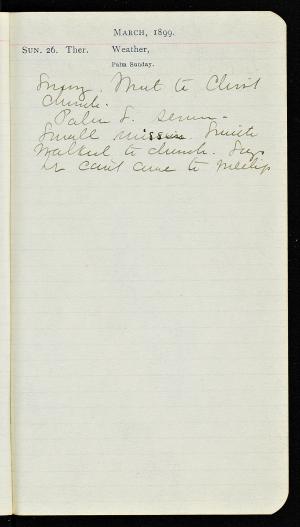 MARCH, 1899.
SUN. 26. Ther. Weather,
Palm Sunday.
Went to Christ
Church.
Palm S. service.
Small mission. Smith
walked to church. Says
he can't come to meetings